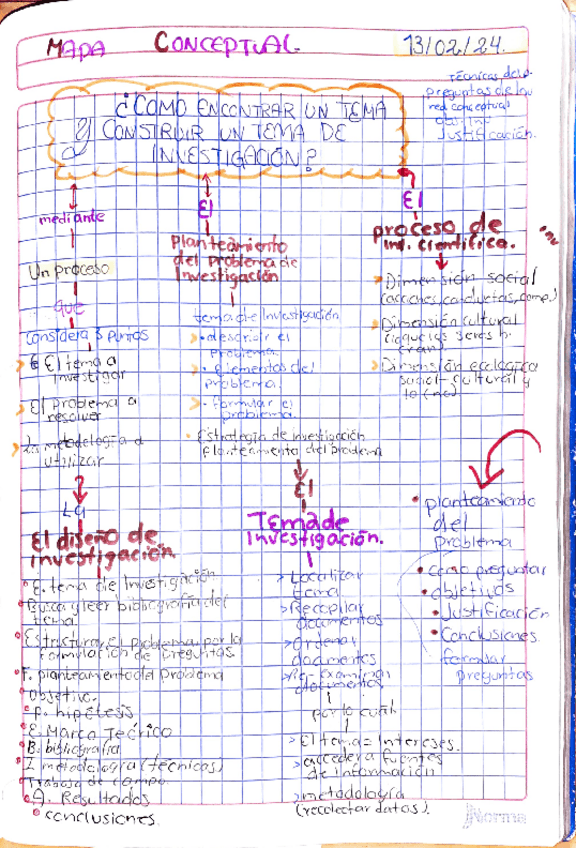 MAPA CONCEPTUAL
13/02/24.
Técnicas de
preguntas de
red conceptual
Justificación.
¿CÓMO ENCONTRAR UN TEMA
y CONSTRUIR UN TEMA DE
INVESTIGACIÓN?
mediante
Un proceso
que
considera 3 puntos
El tema a
investigar
El problema a
resolver
metodología a
utilizar
El
Planteamiento
del Problema de
Investigación
tema de investigación
describir el
problema
elementos del
problema.
formular el
problema.
Estrategia de investigación
planteamiento del problema
El
proceso de
inv. científica.
inv
Dimensión social
(acciones, conductas, comp.)
Dimensión cultural
Dimensión ecológica
social-cultural y
La
El diseño de
investigación.
E. tema de Investigación
Busca y leer bibliografía del
tema.
Estructurar el problema por la
formulación de preguntas.
F. planteamiento del problema
Objetivo.
F. hipótesis
E. Marco Teórico
B. bibliografía
I. metodología (técnicas)
Trabajo de campo.
A. Resultados
conclusiones.
El
Tema de
Investigación.
Localizar
tema
Recopilar
documentos
Ordenar
documentos
documentos
por lo cuál
El tema = Intereses.
acceder a fuentes
de información
metodología
(recolectar datos).
planteamiento
del
problema
como preguntar
objetivos
Justificación
Conclusiones
formular
preguntas
Norma